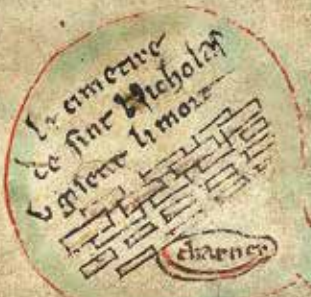 li cimetire
de sint Nicholas
u gisent li mort
charner